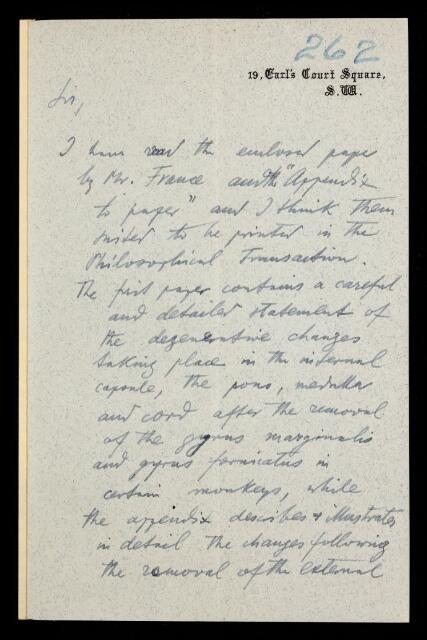 262
19, Earl's Court Square,
S.W.
Sir,
I have read the enclosed paper
by Mr. France and the "Appendix
to paper" and I think them
suited to be printed in the
Philosophical Transaction.
The first paper contains a careful
and detailed statement of
the degenerative changes
taking place in the internal
capsule, the pons, medulla
and cord after the removal
of the gyrus marginalis
and gyrus fornicatus in
certain monkeys, while
the appendix describes & illustrates
in detail the changes following
the removal of the external